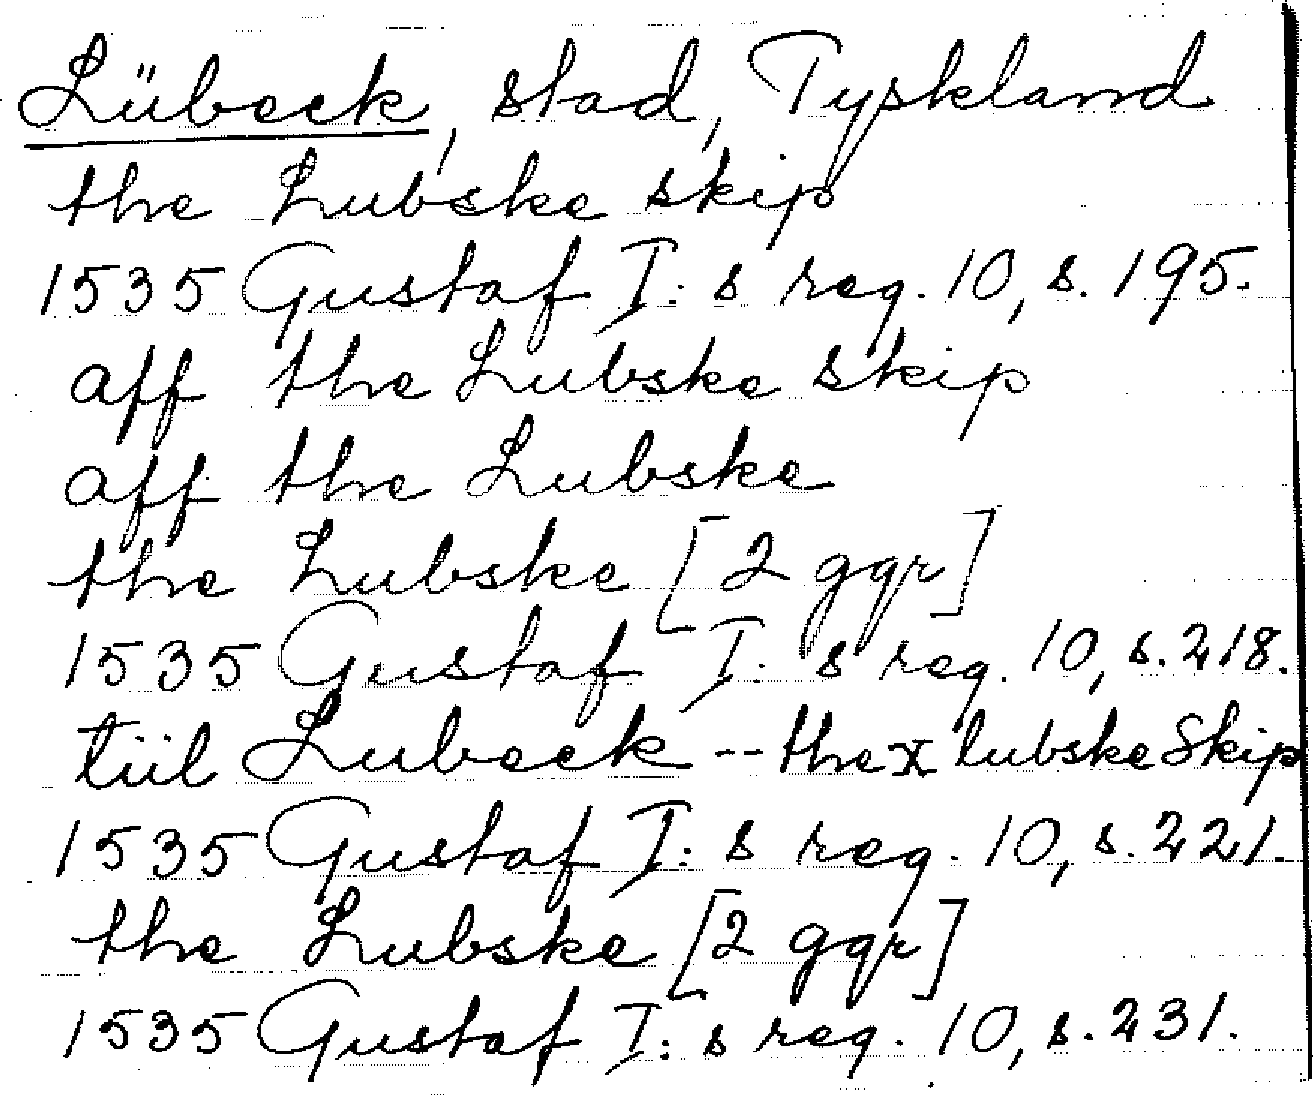 Lübeck, stad, Tyskland
the Lubske skip
1535 Gustaf I: s reg. 10, s. 195.
aff the Lubske skip
aff the Lubske
the Lubske [2 ggr]
1535 Gustaf I: s reg. 10, s. 218.
tiil Lubeck -- the x lubske Skip
1535 Gustaf I: s reg. 10, s. 221.
the Lubske [2 ggr]
1535 Gustaf I: s reg. 10, s. 231.